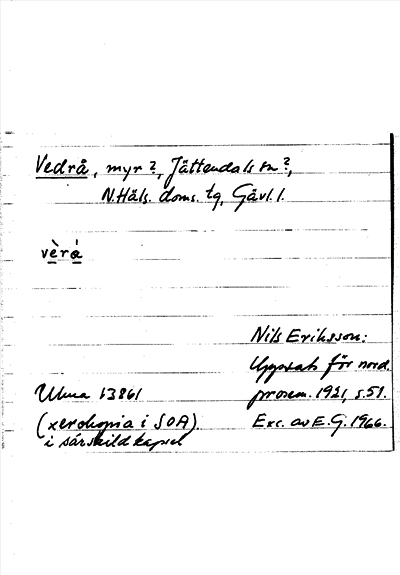 Vedrå, myr?, Jättendals sn?,
N. Häls. doms. tg, Gävl. l.
vèrå
Nils Eriksson:
Uppsats för nord.
Ulma 13861
prosem. 1921, s. 51.
(xerokopia i SOA).
Exc. av E.G. 1966.
i särskild kapsel